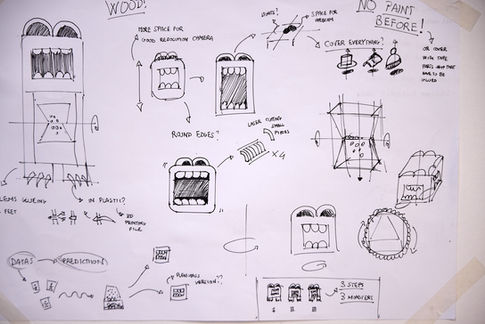 WOOD?
NO PAINT
BEFORE!
MORE SPACE FOR
GOOD RESOLUTION CAMERA
SPACE FOR
COVER EVERYTHING?
OR COVER
WITH TAPE
PARTS THAT
HAVE TO BE
GLUED
LASER CUTTING
SMALL
PIECES
ROUND EDGES?
X4
FEET
IN PLASTIC?
3D
PRINTING
FILE
DATAS
PREDICTIONS
3 STEPS
3 MONSTERS
I II III